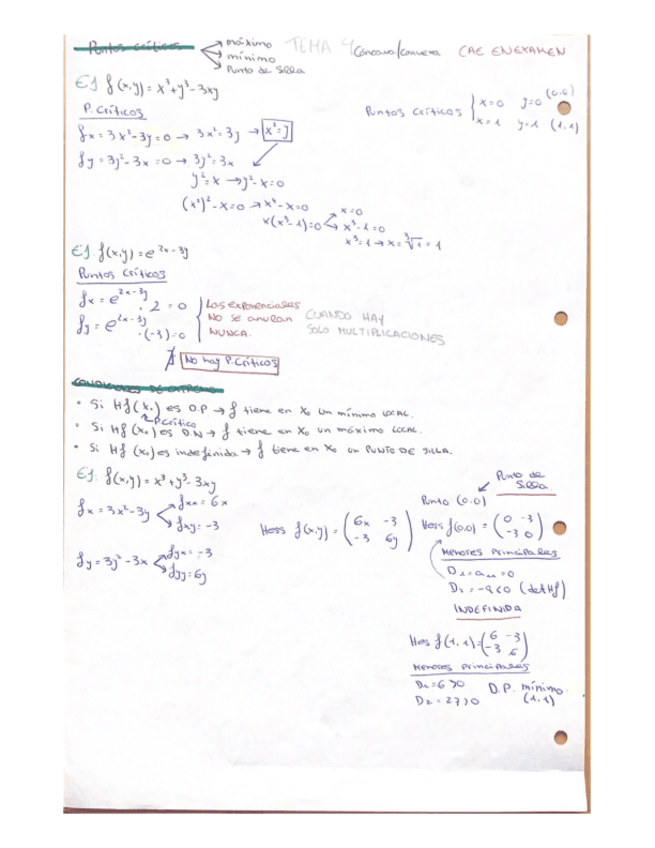 Puntos críticos
máximo
mínimo
Punto de Silla
TEMA 4
Cóncava/convexa
CAE EN EXAMEN
EJ f(x,y) = x³+y³-3xy
P. Críticos
fx = 3x²-3y=0 → 3x²=3y → x²=y
fy = 3y²-3x=0 → 3y²=3x
y²=x → y²-x=0
(x²)²-x=0 → x⁴-x=0
x(x³-1)=0
x=0
x³-1=0
x³=1 → x=∛1=1
Puntos críticos { x=0 y=0 (0,0)
x=1 y=1 (1,1)
EJ. f(x,y) = e^2x-3y
Puntos críticos
fx = e^2x-3y · 2 = 0
fy = e^2x-3y · (-3) = 0
Las exponenciales
NO se anulan
NUNCA.
CUANDO HAY
SOLO MULTIPLICACIONES
No hay P.Críticos
CONDICIONES DE EXTREMO
• Si Hf(x₀) es D.P → f tiene en x₀ un mínimo LOCAL.
P.Crítico
• Si Hf(x₀) es D.N → f tiene en x₀ un máximo LOCAL.
• Si Hf(x₀) es indefinida → f tiene en x₀ un PUNTO DE SILLA.
EJ. f(x,y) = x³+y³-3xy
fx = 3x²-3y
fxx = 6x
fxy = -3
fy = 3y²-3x
fyx = -3
fyy = 6y
Hess f(x,y) = (6x -3
-3 6y)
Punto de
Silla
Punto (0,0)
Hess f(0,0) = (0 -3
-3 0)
MENORES PRINCIPALES
D₁=a₁₁=0
D₂=-9<0 (det Hf)
INDEFINIDA
Hes f(1,1)=(6 -3
-3 6)
MENORES PRINCIPALES
D₁=6>0
D₂=27>0
D.P. mínimo.
(1,1)